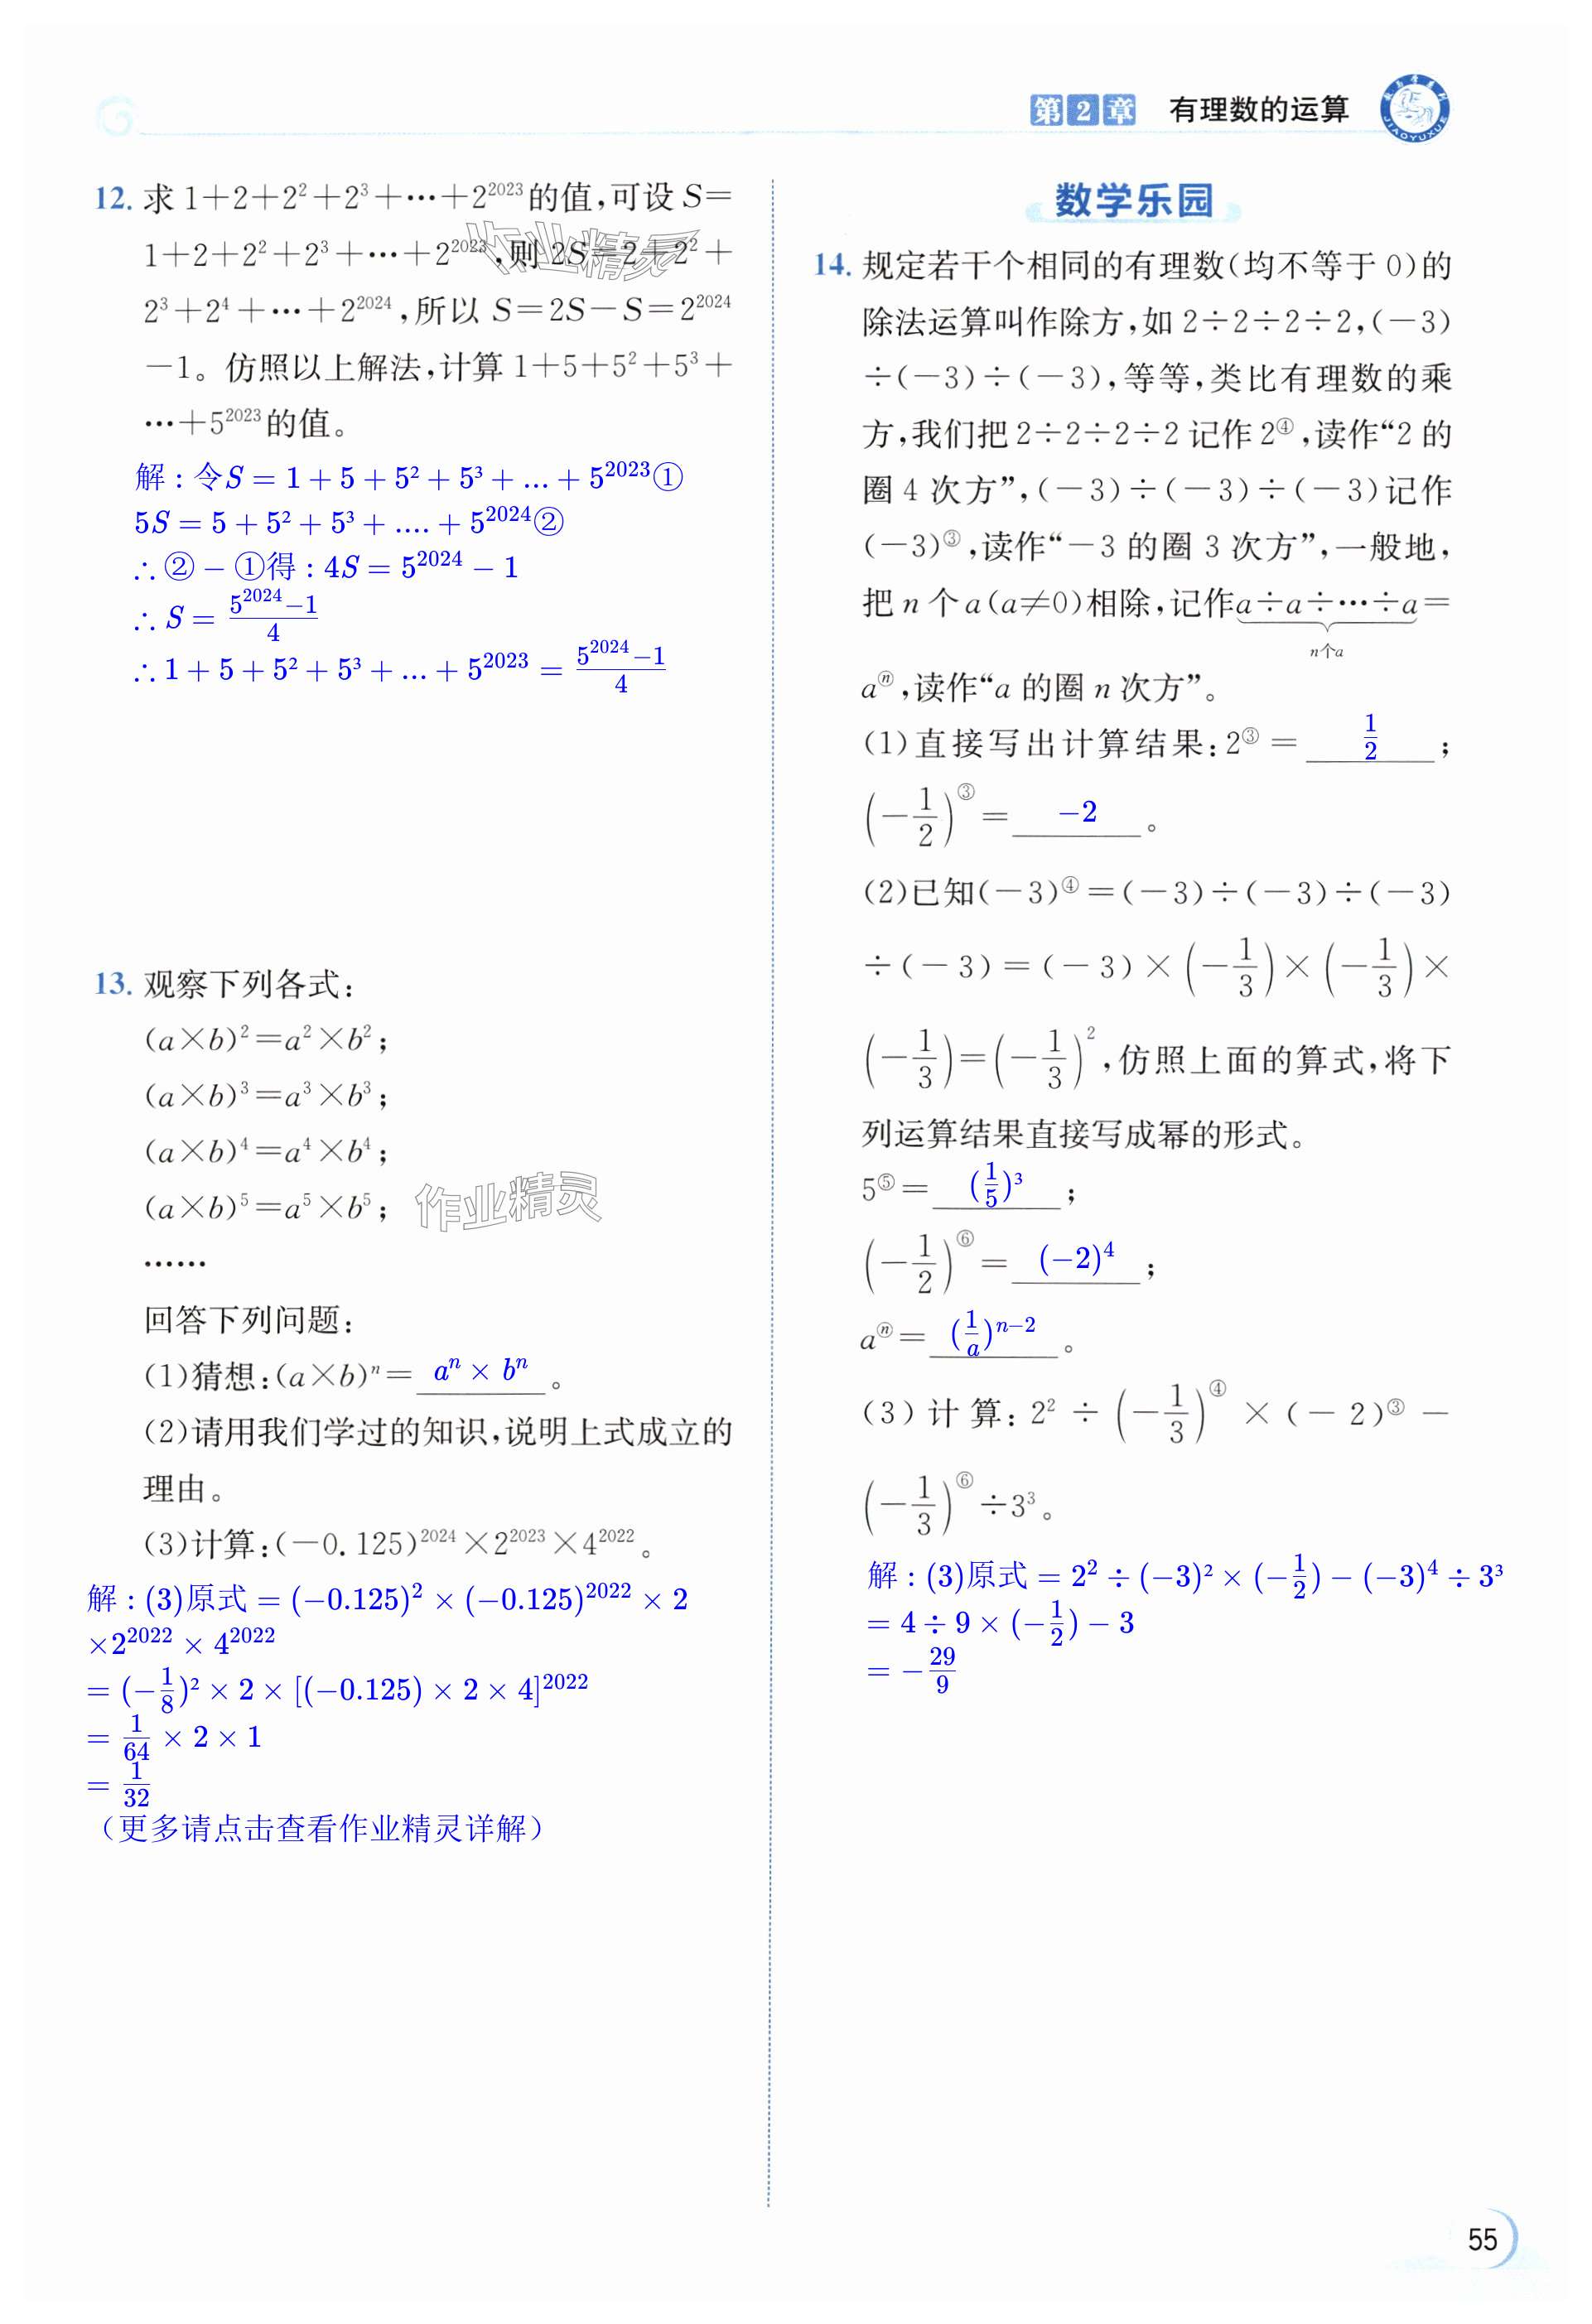 第2章 有理数的运算
12. 求1+2+2²+2³+…+2²⁰²³的值,可设S=
1+2+2²+2³+…+2²⁰²³,则2S=2+2²+
2³+2⁴+…+2²⁰²⁴,所以S=2S-S=2²⁰²⁴
-1。仿照以上解法,计算1+5+5²+5³+
…+5²⁰²³的值。
解:令S=1+5+5²+5³+...+5²⁰²³①
5S=5+5²+5³+....+5²⁰²⁴②
∴②-①得:4S=5²⁰²⁴-1
∴S=(5²⁰²⁴-1)/4
∴1+5+5²+5³+...+5²⁰²³=(5²⁰²⁴-1)/4
13. 观察下列各式:
(a×b)²=a²×b²;
(a×b)³=a³×b³;
(a×b)⁴=a⁴×b⁴;
(a×b)⁵=a⁵×b⁵;
作业精灵
……
回答下列问题:
(1)猜想:(a×b)ⁿ=aⁿ×bⁿ。
(2)请用我们学过的知识,说明上式成立的
理由。
(3)计算:(-0.125)²⁰²⁴×2²⁰²³×4²⁰²²。
解:(3)原式=(-0.125)²×(-0.125)²⁰²²×2
×2²⁰²²×4²⁰²²
=(-1/8)²×2×[(-0.125)×2×4]²⁰²²
=1/64×2×1
=1/32
(更多请点击查看作业精灵详解)
数学乐园
14. 规定若干个相同的有理数(均不等于0)的
除法运算叫作除方,如2÷2÷2÷2,(-3)
÷(-3)÷(-3),等等,类比有理数的乘
方,我们把2÷2÷2÷2记作2^④,读作“2的
圈4次方”,(-3)÷(-3)÷(-3)记作
(-3)^③,读作“-3的圈3次方”,一般地,
把n个a(a≠0)相除,记作a÷a÷…÷a=
n个a
a^ⓝ,读作“a的圈n次方”。
(1)直接写出计算结果:2^③=1/2;
(-1/2)^③=-2。
(2)已知(-3)^④=(-3)÷(-3)÷(-3)
÷(-3)=(-3)×(-1/3)×(-1/3)×
(-1/3)=(-1/3)²,仿照上面的算式,将下
列运算结果直接写成幂的形式。
5^⑤=(1/5)³;
(-1/2)^⑥=(-2)⁴;
a^ⓝ=(1/a)ⁿ⁻²。
(3)计算:2²÷(-1/3)^④×(-2)^③-
(-1/3)^⑥÷3³。
解:(3)原式=2²÷(-3)²×(-1/2)-(-3)⁴÷3³
=4÷9×(-1/2)-3
=-29/9
55
作业精灵
JIAOYUXUE